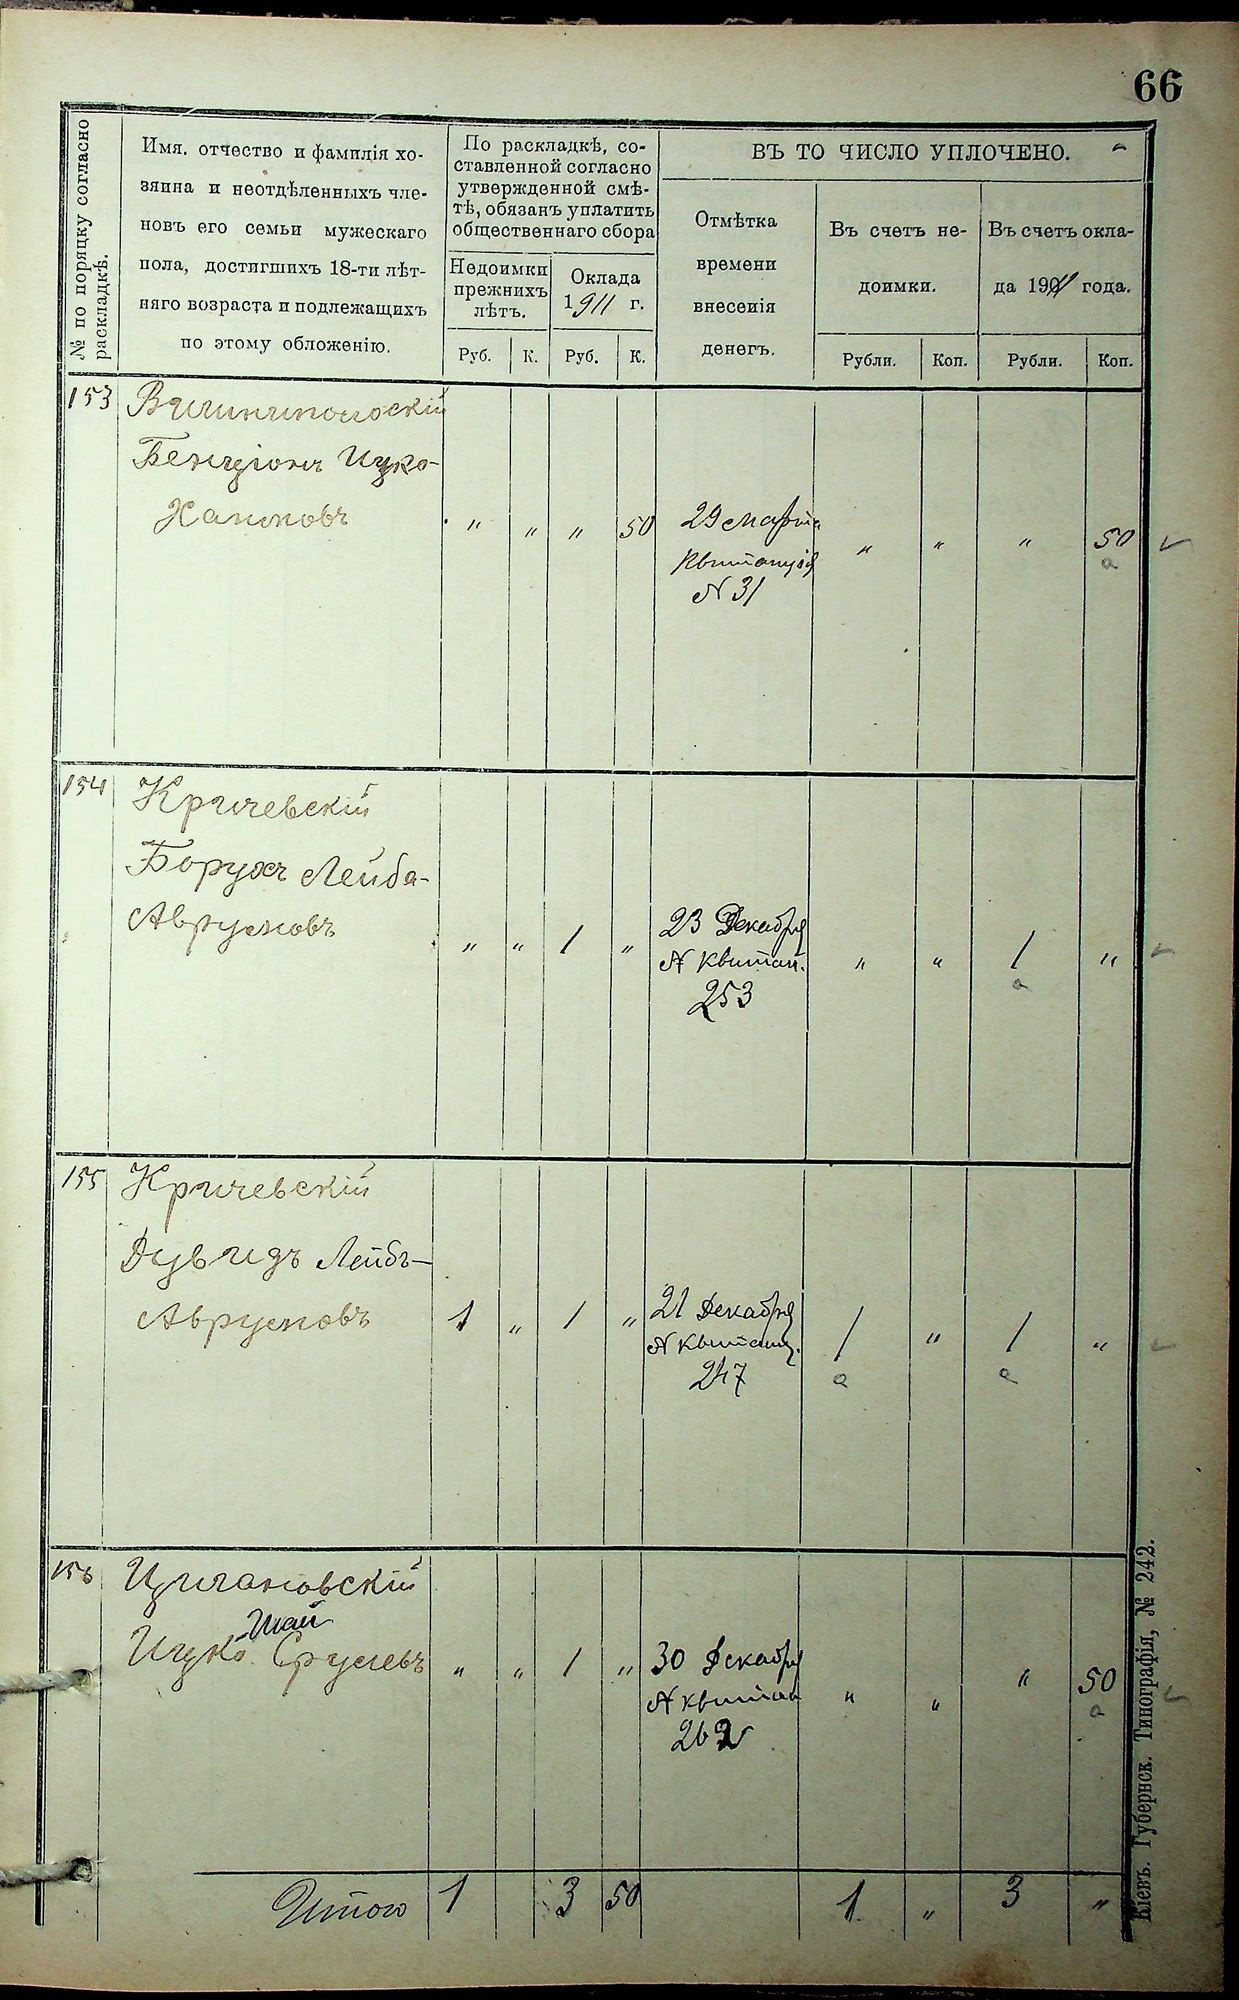 66
№ по порядку согласно
раскладкѣ.
Имя, отчество и фамилія хо-
зяина и неотдѣленныхъ чле-
новъ его семьи мужескаго
пола, достигшихъ 18-ти лѣт-
няго возраста и подлежащихъ
по этому обложенію.
По раскладкѣ, со-
ставленной согласно
утвержденной смѣ-
тѣ, обязанъ уплатить
общественнаго сбора
Недоимки
прежнихъ
лѣтъ.
Оклада
1911 г.
Руб. К. Руб. К.
ВЪ ТО ЧИСЛО УПЛОЧЕНО.
Отмѣтка
времени
внесенія
денегъ.
Въ счетъ не-
доимки.
Въ счетъ окла-
да 1911 года.
Рубли. Коп. Рубли. Коп.
153
Бенціонъ Ицко-
Хаимовъ
" " " 50
29 Марта
Квитанція
N 31
" " " 50
154 Кричевскій
Борухъ Лейба-
Аврумовъ
" " 1 "
23 Декабря
N квитан.
253
" " 1 "
155 Кричевскій
Дувидъ Лейбъ-
Аврумовъ
1 " 1 "
21 Декабря
N квитанц.
247
1 " 1 "
156 Цигановскій
Шая
Ицко Срулевъ
" " 1 "
30 Декабря
N квитан
262
" " " 50
Итого 1 3 50 1 " 3 "
Кіевъ. Губернск. Типографія, № 242.